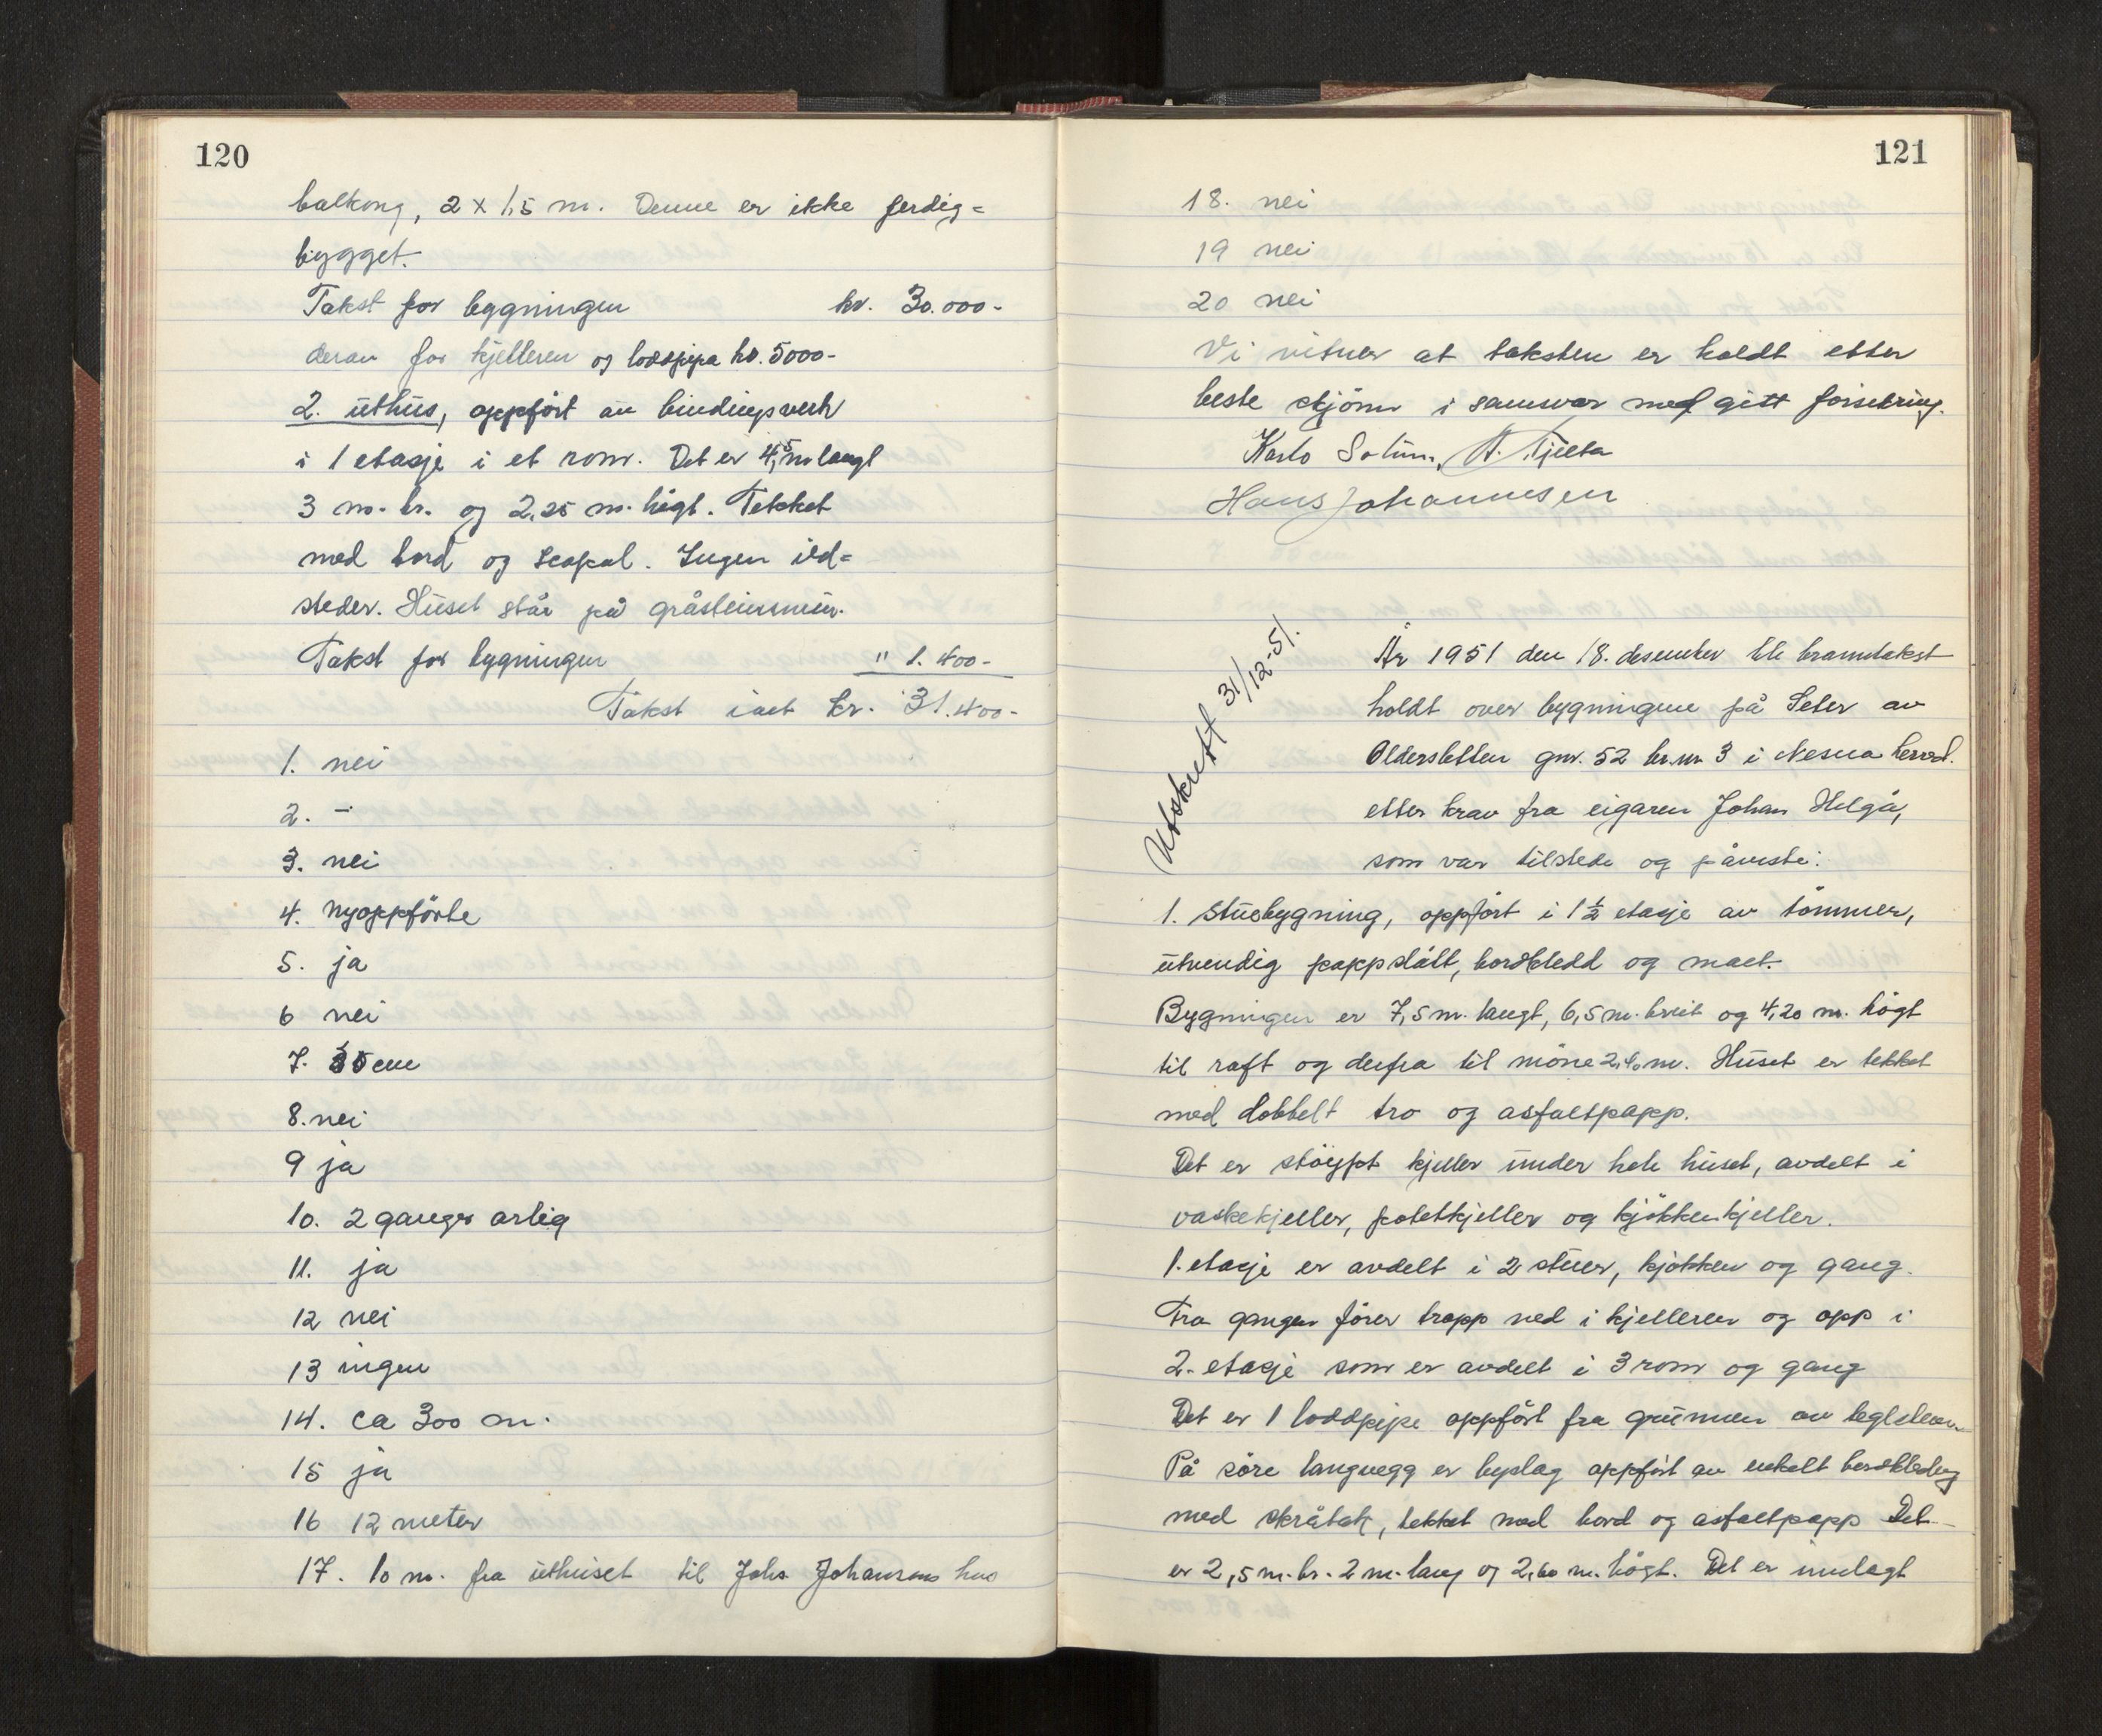 120
balkong, 2 x 1,5 m. Denne er ikke ferdig=
bygget.
Takst for bygningen kr. 30.000-
derav for kjelleren og loddpipa kr. 5000-
2. uthus, oppført av bindingsverk
i 1 etasje i et rom. Det er 4,5 m langt
3 m. br. og 2,25 m. högt. Tekket
med bord og papp. Ingen ild=
steder. Huset står på gråsteinsmur.
Takst for bygningen " 1.400-
Takst ialt kr. 31.400-
1. nei
2. -
3. nei
4. nyoppförte
5. ja
6 nei
7. 35 cm
8. nei
9 ja
10. 2 ganger årlig
11. ja
12 nei
13 ingen
14. ca 300 m.
15 ja
16 12 meter
17. 10 m. fra uthuset til Johs Johansens hus
121
18. nei
19 nei
20 nei
Vi vitner at taksten er holdt etter
beste skjönn i samsvar med gitt forsikring.
Karlo Solum. A. Fjelta
Hans Johannesen
Utskrett 31/12-51.
År 1951 den 18. desember ble branntakst
holdt over bygningene på Seter av
Oldersletten gnr. 52 br.nr 3 i Nesna herred.
etter krav fra eigaren Johan Helgå,
som var tilstede og påviste:
1. Stuebygning, oppfört i 1 1/2 etasje av tömmer,
utvendig pappslått, bordkledd og malt.
Bygningen er 7,5 m. langt, 6,5 m. breit og 4,20 m. högt
til raft og derfra til möne 2,40 m. Huset er tekket
med dobbelt tro og asfaltpapp.
Det er stöypt kjeller under hele huset, avdelt i
vaskekjeller, potetkjeller og kjökkenkjeller.
1. etasje er avdelt i 2 stuer, kjökken og gang.
Fra gangen förer trapp ned i kjelleren og opp i
2. etasje som er avdelt i 3 rom og gang
Det er 1 loddpipe oppfört fra grunnen av teglstein
På söre langvegg er byslag oppfört av enkelt bordkledng
med skråtak, tekket med bord og asfaltpapp Det
er 2,5 m. br. 2 m. lang og 2,60 m. högt. Det er innlagt